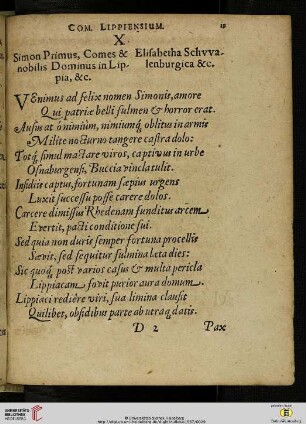 COM. LIPPIENSIUM.
X.
Simon Primus, Comes &
nobilis Dominus in Lip-
pia, &c.
Elisabetha Schvva-
lenburgica &c.
VEnimus ad felix nomen Simonis, amore
Qui patriæ belli fulmen & horror erat.
Ausus at ô nimiùm, nimiumq; oblitus in armis
Milite nocturno tangere castra dolo:
Totq; simul mactare viros, captivus in urbe
Osnaburgensi, Buccia vincla tulit.
Insidiis captus, fortunam sæpius urgens
Luxit successu posse carere dolos.
Carcere dimissus Rhedenam funditus arcem
Evertit, pacti conditione sui.
Sed quia non duris semper fortuna procellis
Sævit, sed sequitur fulmina læta dies:
Sic quoq; post varios casus & multa pericla
Lippiacam fovit purior aura domum.
Lippiaci rediere viri, sua limina clausit
Quilibet, obsidibus parte ab utraq; datis.
D 2
Pax
UNIVERSITÄTS-
BIBLIOTHEK
HEIDELBERG